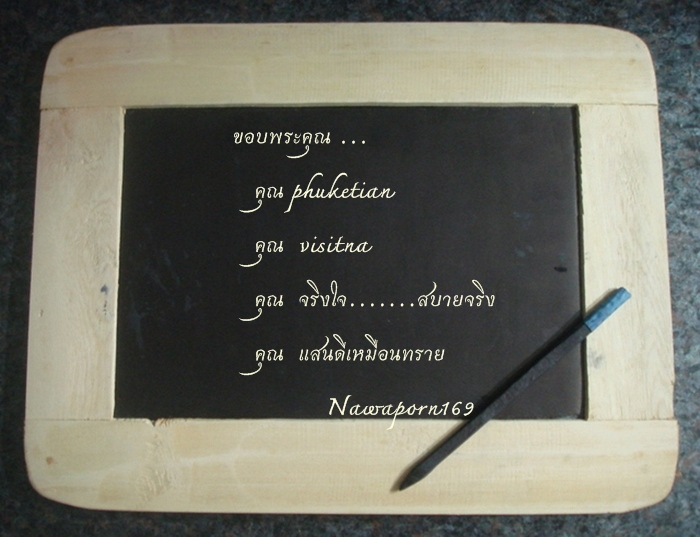 ขอบพระคุณ ...
คุณ phuketian
คุณ visitna
คุณ จริงใจ.......สบายจริง
คุณ แสนดีเหมือนทราย
Nawaporn169